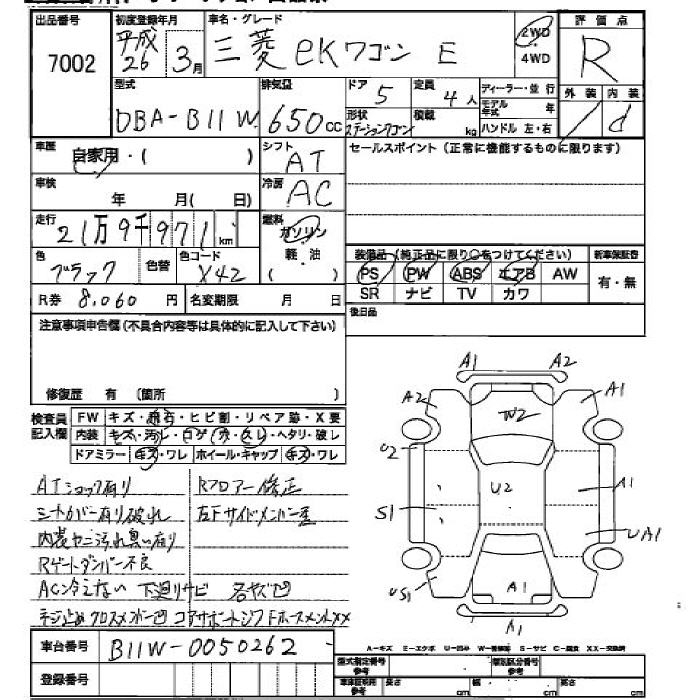 出品番号 初度登録年月 車名・グレード 評価点
7002 平成26 3月 三菱 eKワゴン E 2WD・4WD R
外装 内装
/ d
型式 排気量 ドア 定員 ディーラー・並行
DBA-B11W 650cc 5 4人 モデル年式 年
形状 積載 ハンドル 左・右
ステーションワゴン kg
車歴 シフト セールスポイント(正常に機能するものに限ります)
自家用・( ) AT
車検 冷房
年 月( 日) AC
走行 燃料
21万9千971km ガソリン
軽・油
( )
色 色替 色コード
ブラック X42
装備品(純正品に限り○をつけてください) 新車保証書
PS PW ABS エアB AW 有・無
SR ナビ TV カワ
R券 8,060円 名変期限 月 日
後日品
注意事項申告欄(不具合内容等は具体的に記入して下さい)
修復歴 有 〔箇所 〕
検査員記入欄 FW キズ・飛石・ヒビ割・リペア跡・X要
内装 キズ・汚レ・コゲ・穴・スレ・ヘタリ・破レ
ドアミラー キズ・ワレ ホイール・キャップ キズ・ワレ
ATショック有り Rフロアー修正
シートカバー有り破れ 左Fサイドメンバー歪
内装ヤニ汚れ臭い有り
Rゲートダンパー不良
AC冷えない 下廻りサビ 各ヤズ凹
ネジ止め クロスメンバー凹 コアサポートシワ
A1 A2
A2 A1
W2
U2
U2 A1
S1
UA1
US1
A1
A1
A-キズ E-エクボ U-凹み W-補修跡 S-サビ C-腐食 XX-交換済
車台番号 B11W-0050262
登録番号
型式指定番号 参考 類別区分番号 参考
車庫証明用 参考 長さ cm 幅 cm 高さ cm